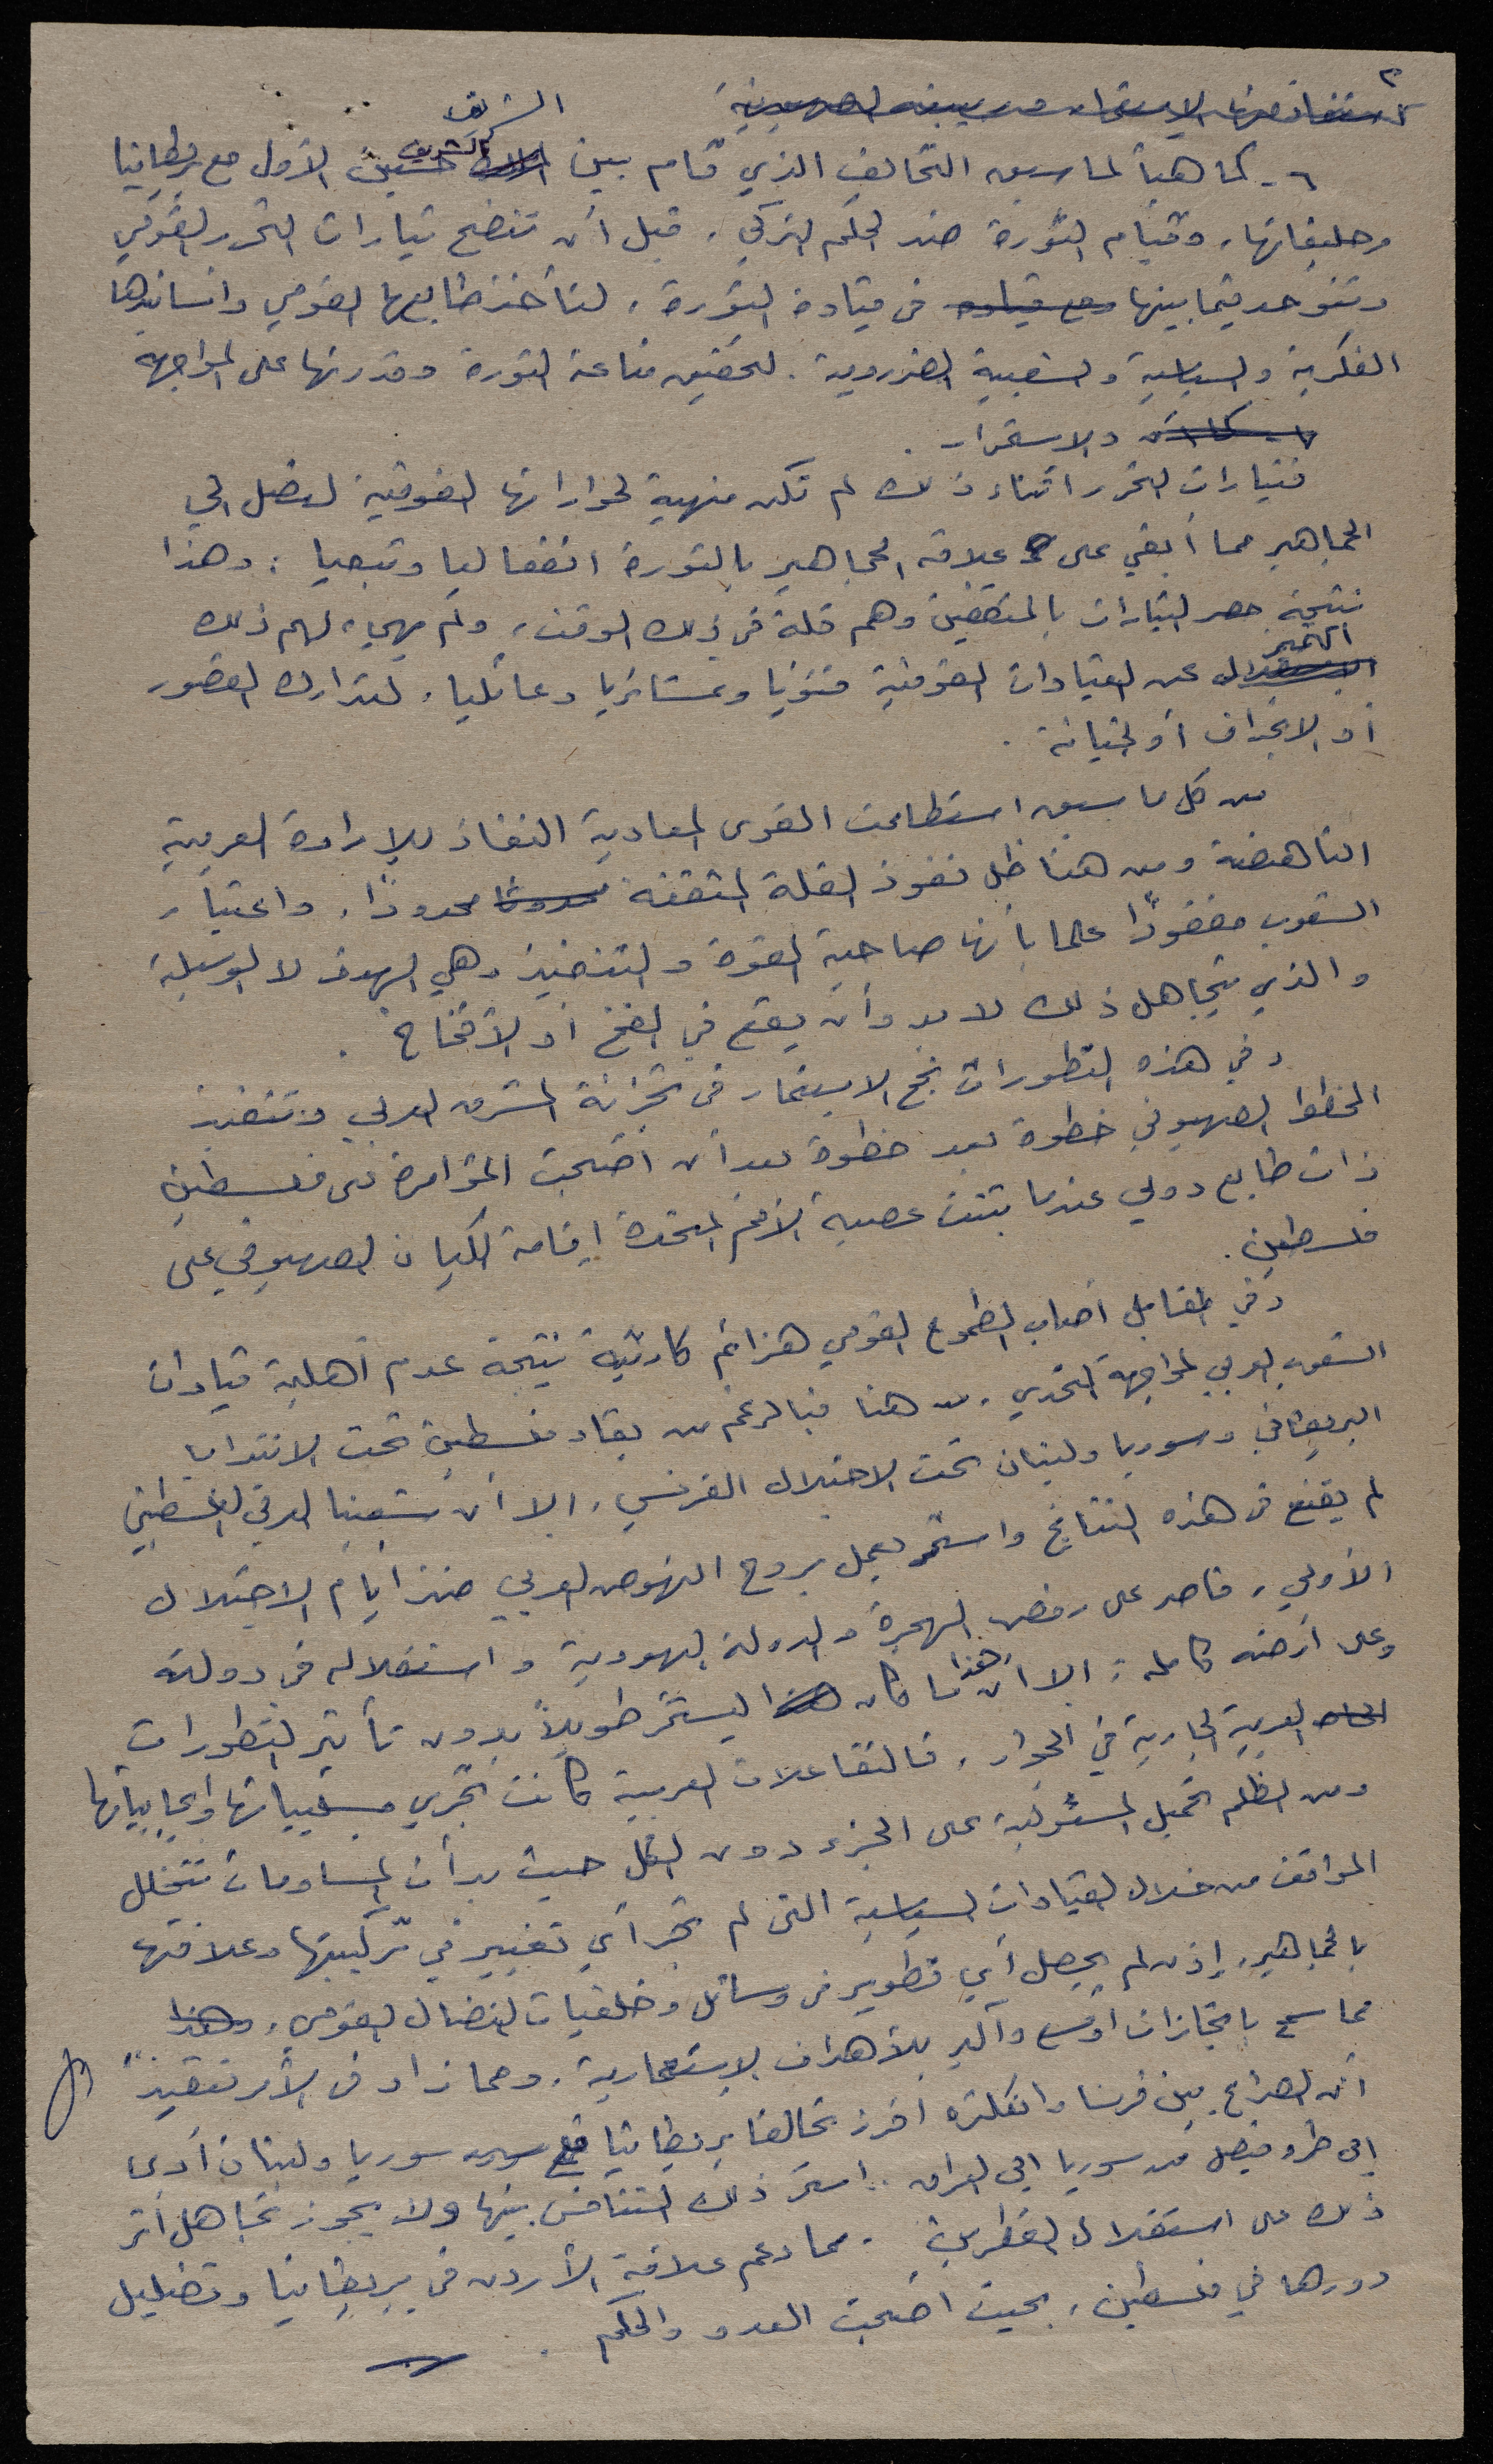 ٢
الشريف
٦- كما هيأ لما سبق التحالف الذي قام بين حسين الأول مع بريطانيا
وحليفاتها، وقيام الثورة ضد الحكم التركي، قبل أن تنضج تيارات التحرر القومي
وتتوحد فيما بينها في قيادة الثورة، لتأخذ طابعها القومي وأسانيدها
الفكرية والسياسية والشعبية الضرورية. لتحقيق مناعة الثورة وقدرتها على المواجهة
والاستمرار.
فتيارات التحرر اثناء ذلك لم تكن منهية لحواراتها الفوقية لتصل الى
الجماهير مما أبقي على علاقة الجماهير بالثورة انفعاليا وتبعيا: وهذا
نتيجة حصر التيارات بالمثقفين وهم قلة في ذلك الوقت، ولم يهيء لهم ذلك
التميز
عن القيادات الفوقية فئويا وعشائريا وعائليا. لتدارك القصور
أو الانحراف أو الخيانة.
من كل ما سبق استطاعت القوى المعادية النفاذ للإرادة العربية
الناهضة ومن هنا ظل نفوذ القلة المثقفة محدودًا، واعتبار
الشعوب مفقودًا علما بأنها صاحبة القوة والتنفيذ وهي الهدف لا الوسيلة
والذي يتجاهل ذلك لا بد وأن يقع في الفخ أو الأفخاخ.
وفي هذه التطورات نجح الاستعمار في تجزئة المشرق العربي وتنفيذ
المخطط الصهيوني خطوة بعد خطوة بعد أن أضحت المؤامرة على فلسطين
ذات طابع دولي عندما تبنت عصبة الأمم المتحدة إقامة الكيان الصهيوني على
فلسطين.
وفي المقابل أصاب الطموح القومي هزائم كارثية نتيجة عدم أهلية قيادات
الشعوب العربي لمواجهة التحدي. من هنا فبالرغم من بقاء فلسطين تحت الانتداب
البريطاني وسوريا ولبنان تحت الاحتلال الفرنسي، إلا أن شعبنا العربي الفلسطيني
لم يقنع في هذه النتائج واستمر يعمل بروح النهوض العربي منذ أيام الاحتلال
الأولى، فأصر على رفض الهجرة والدولة اليهودية واستقلاله في دولته
وعلى أرضه كاملة: إلا أن هذا ما كان ليستمر طويلاً بدون تأثير التطورات
العربية الجارية في الجوار، فالتفاعلات العربية كانت تجري بسلبياتها وايجابياتها
ومن الظلم تحميل المسئولية على الجزء دون الكل حيث بدأت المساومات تتخلل
المواقف من خلال القيادات السياسية التي لم تجر أي تغيير في تركيبتها وعلاقتها
بالجماهير، إذن لم يحصل أي تطوير في وسائل وخلفيات النضال القومي،
مما سمح بامتيازات أوسع وأكبر للأهداف الاستعمارية. ومما زاد في الأمر تعقيدًا
أن الصراع بين فرنسا وانكلتره أفرز تحالفا بريطانيا مع سوريا ولبنان أدى
إلى طرد فيصل من سوريا إلى العراق. استمر ذلك التنافس بينها ولا يجوز تجاهل أثر
ذلك على استقلال القطرين. مما دعم علاقة الأردن في بريطانيا وتضليل
دورها في فلسطين، بحيث أضحت العدو والحكم.